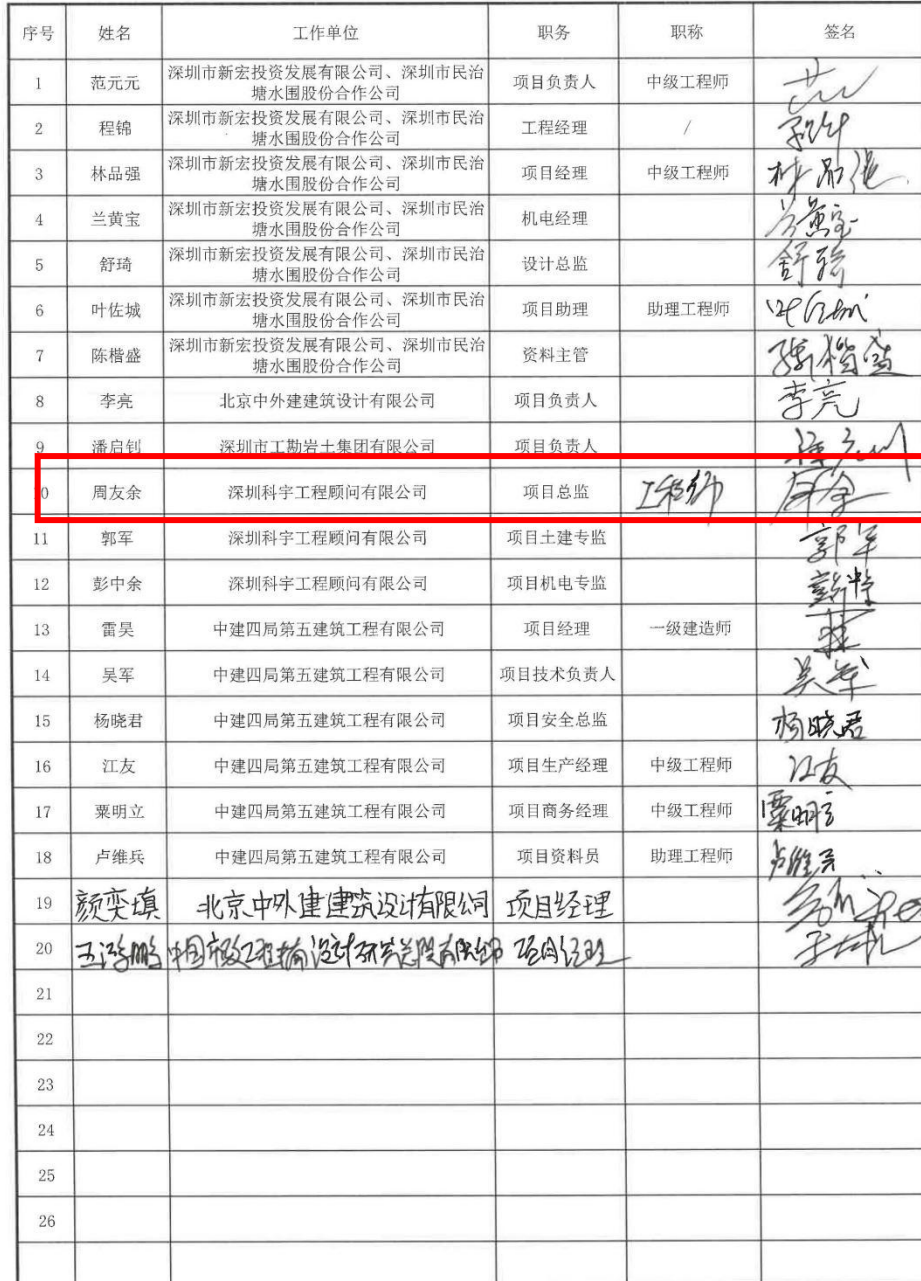 序号 姓名 工作单位 职务 职称 签名
1 范元元 深圳市新宏投资发展有限公司、深圳市民治塘水围股份合作公司 项目负责人 中级工程师
2 程锦 深圳市新宏投资发展有限公司、深圳市民治塘水围股份合作公司 工程经理 / 程锦
3 林品强 深圳市新宏投资发展有限公司、深圳市民治塘水围股份合作公司 项目经理 中级工程师 林品强
4 兰黄宝 深圳市新宏投资发展有限公司、深圳市民治塘水围股份合作公司 机电经理 兰黄宝
5 舒琦 深圳市新宏投资发展有限公司、深圳市民治塘水围股份合作公司 设计总监 舒琦
6 叶佐城 深圳市新宏投资发展有限公司、深圳市民治塘水围股份合作公司 项目助理 助理工程师 叶佐城
7 陈楷盛 深圳市新宏投资发展有限公司、深圳市民治塘水围股份合作公司 资料主管 陈楷盛
8 李亮 北京中外建建筑设计有限公司 项目负责人 李亮
9 潘启钊 深圳市工勘岩土集团有限公司 项目负责人
0 周友余 深圳科宇工程顾问有限公司 项目总监 工程师
11 郭军 深圳科宇工程顾问有限公司 项目土建专监 郭军
12 彭中余 深圳科宇工程顾问有限公司 项目机电专监
13 雷昊 中建四局第五建筑工程有限公司 项目经理 一级建造师
14 吴军 中建四局第五建筑工程有限公司 项目技术负责人 吴军
15 杨晓君 中建四局第五建筑工程有限公司 项目安全总监 杨晓君
16 江友 中建四局第五建筑工程有限公司 项目生产经理 中级工程师 江友
17 粟明立 中建四局第五建筑工程有限公司 项目商务经理 中级工程师 粟明立
18 卢维兵 中建四局第五建筑工程有限公司 项目资料员 助理工程师 卢维兵
19 颜奕填 北京中外建建筑设计有限公司 项目经理
20 中国市政工程 设计研究总院有限公司 项目经理
21
22
23
24
25
26